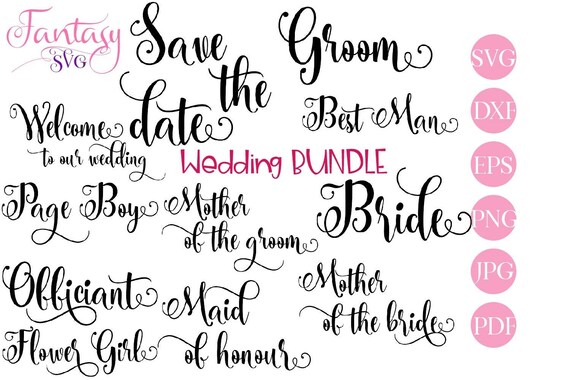 Fantasy
SVG
Save
the
date
Groom
Best Man
Welcome
to our wedding
Wedding BUNDLE
Page Boy
Mother
of the groom
Bride
Officiant
Maid
of honour
Flower Girl
Mother
of the bride
SVG
DXF
EPS
PNG
JPG
PDF